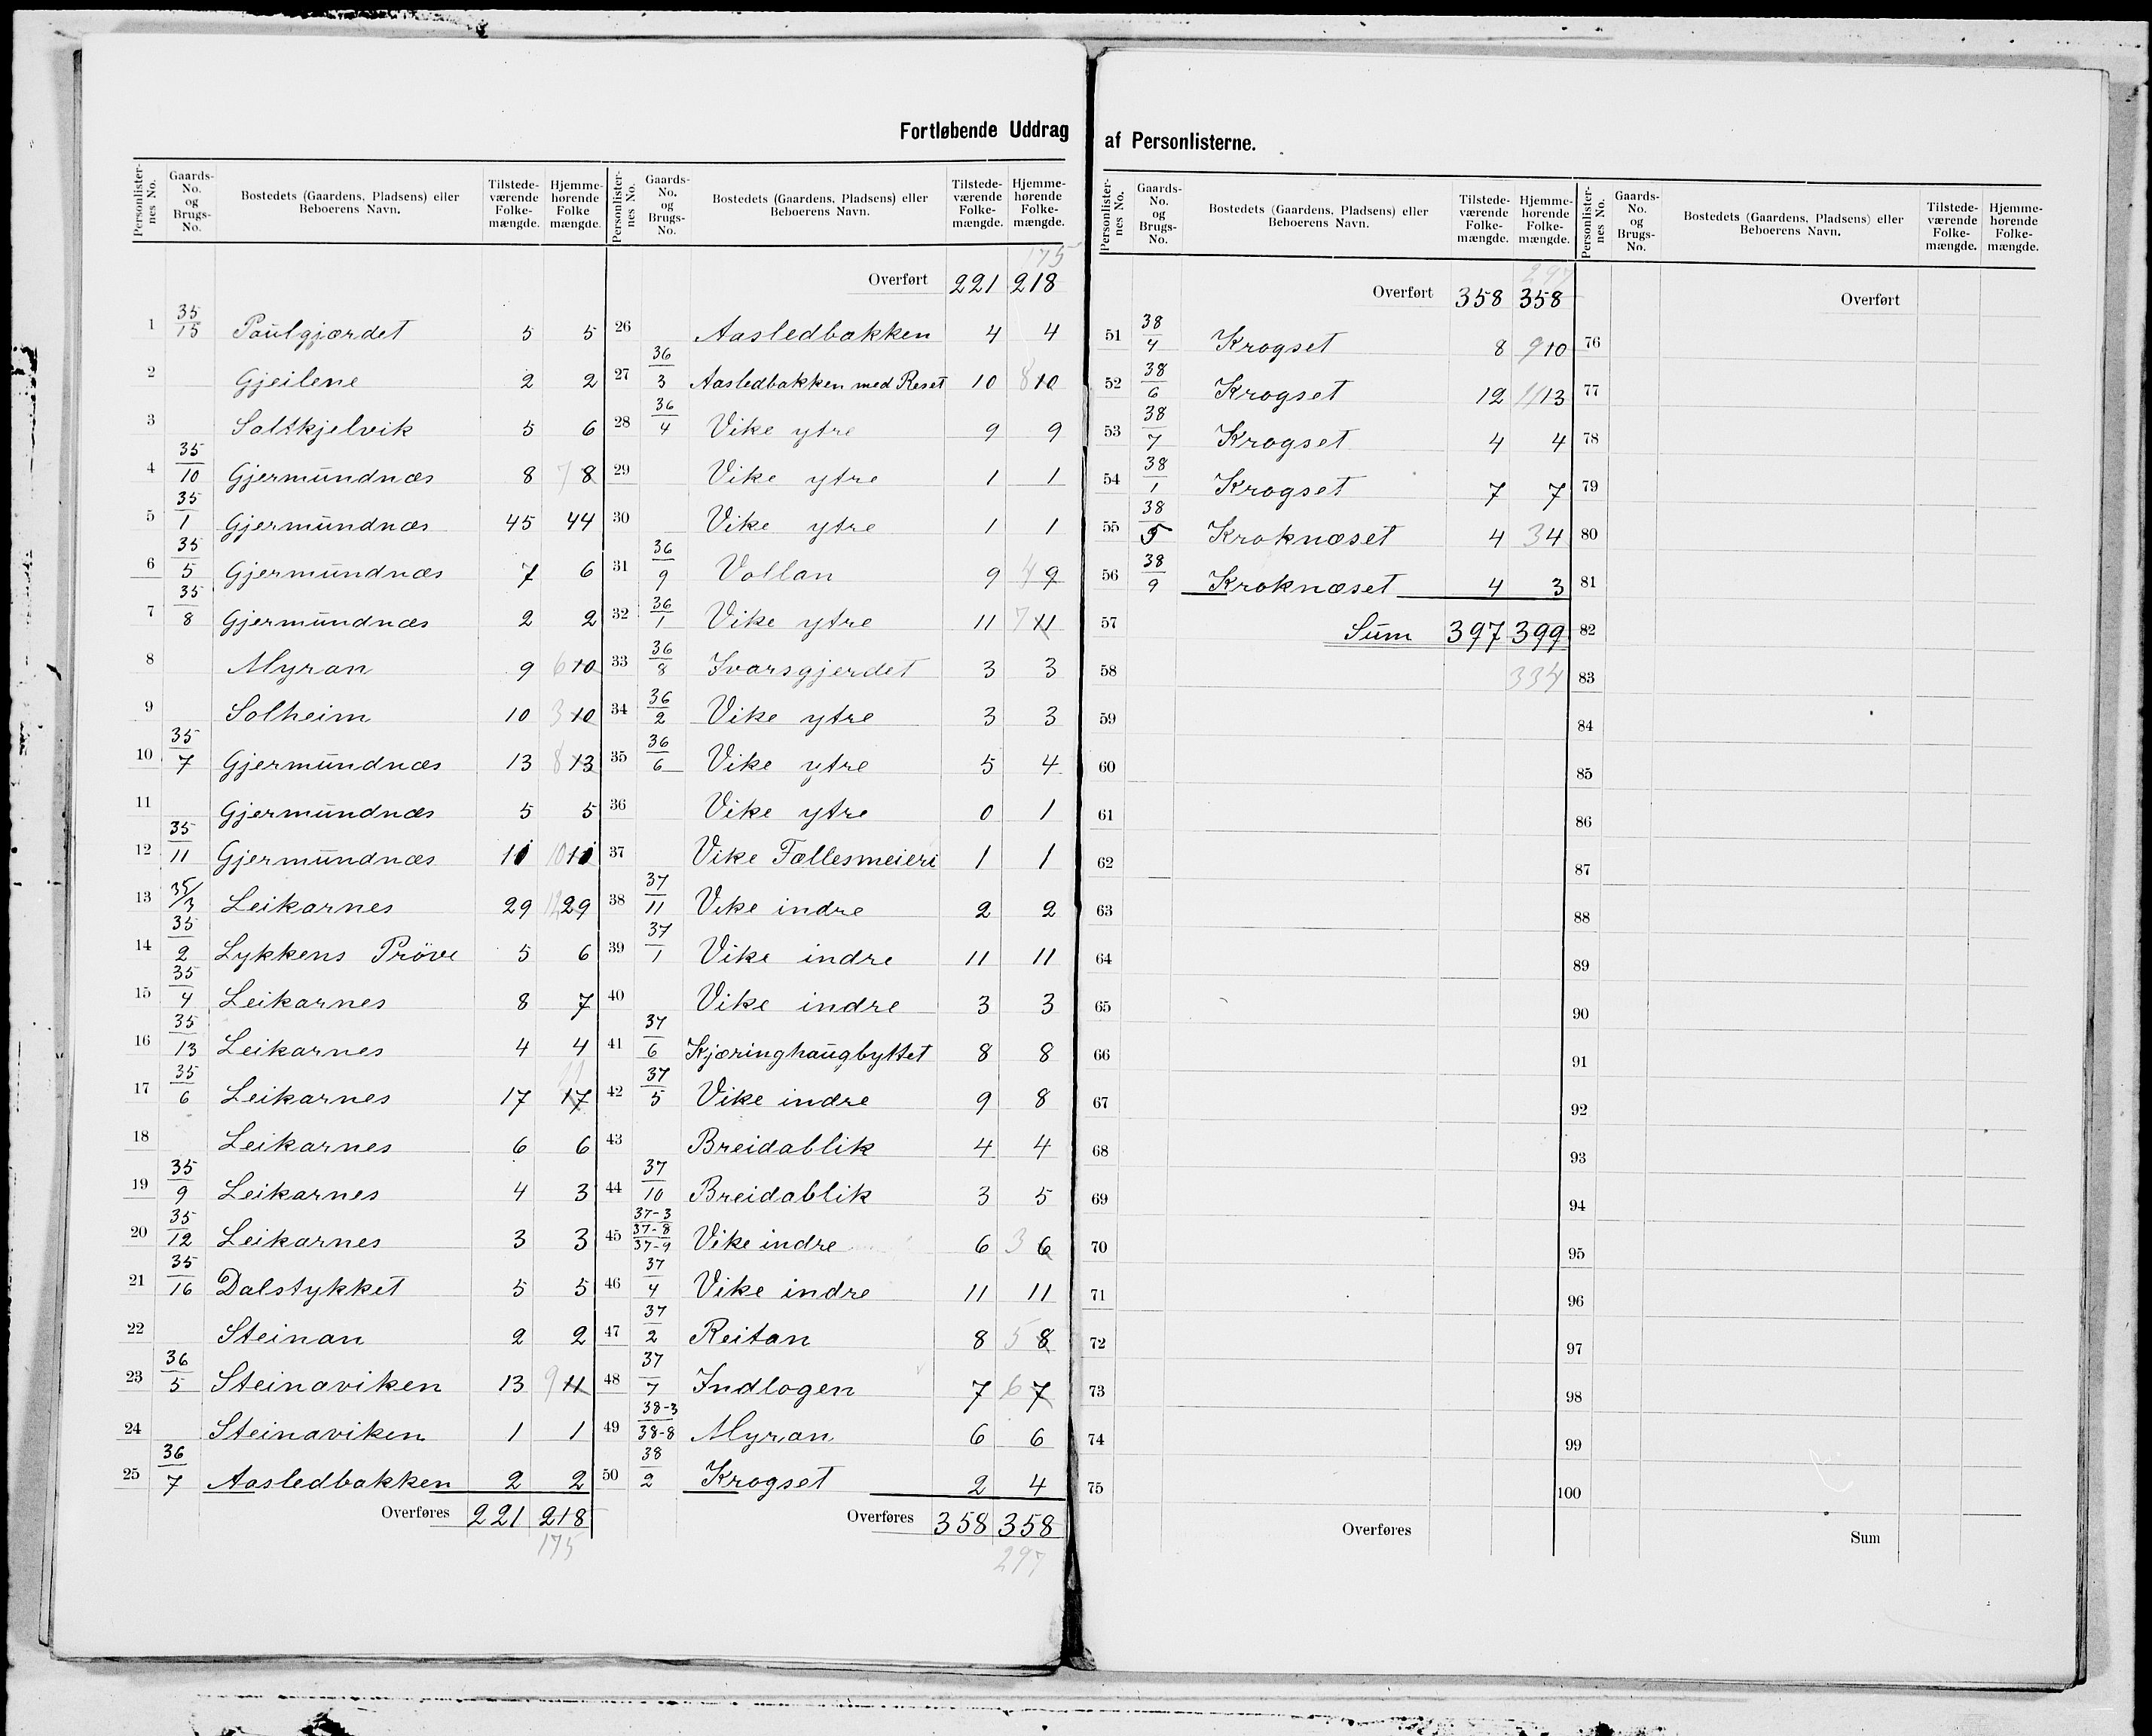 Fortløbende Uddrag af Personlisterne.
Personlister-nes No. | Gaards-No. og Brugs-No. | Bostedets (Gaardens, Pladsens) eller Beboerens Navn. | Tilstede-værende Folke-mængde. | Hjemme-hørende Folke mængde.
1 35/15 Paulgjærdet 5 5
2 Gjeilene 2 2
3 Saltkjelvik 5 6
4 35/10 Gjermundnæs 8 7 8
5 35/1 Gjermundnæs 45 44
6 35/5 Gjermundnæs 7 6
7 35/8 Gjermundnæs 2 2
8 Myran 9 6 10
9 Solheim 10 3 10
10 35/7 Gjermundnæs 13 8 13
11 Gjermundnæs 5 5
12 35/11 Gjermundnæs 10 10
13 35/3 Leikarnes 29 12 29
14 35/2 Lykkens Pröve 5 6
15 35/4 Leikarnes 8 7
16 35/13 Leikarnes 4 4
17 35/6 Leikarnes 17 17
18 Leikarnes 6 6
19 35/9 Leikarnes 4 3
20 35/12 Leikarnes 3 3
21 35/16 Dalstykket 5 5
22 Steinan 2 2
23 36/5 Steinaviken 13 9 11
24 Steinaviken 1 1
25 36/7 Aasledbakken 2 2
Overføres 221 218
175
Personlister-nes No. | Gaards-No. og Brugs-No. | Bostedets (Gaardens, Pladsens) eller Beboerens Navn. | Tilstede-værende Folke-mængde. | Hjemme-hørende Folke-mængde.
175
Overført 221 218
26 Aasledbakken 4 4
27 36/3 Aasledbakken med Reset 10 8 10
28 36/4 Vike ytre 9 9
29 Vike ytre 1 1
30 Vike ytre 1 1
31 36/9 Vollan 9 4 9
32 36/1 Vike ytre 11 7 11
33 36/8 Ivarsgjerdet 3 3
34 36/2 Vike ytre 3 3
35 36/6 Vike ytre 5 4
36 Vike ytre 0 1
37 Vike Fællesmeieri 1 1
38 37/11 Vike indre 2 2
39 37/1 Vike indre 11 11
40 Vike indre 3 3
41 37/6 Kjæringhaugbyttet 8 8
42 37/5 Vike indre 9 8
43 Breidablik 4 4
44 37/10 Breidablik 3 5
45 37-3 37-8 37-9 Vike indre 6 3 6
46 37/4 Vike indre 11 11
47 37/2 Reitan 8 5 8
48 37/7 Indlogen 7 6 7
49 38-3 38-8 Myran 6 6
50 38/2 Krogset 2 4
Overføres 358 358
297
Personlister-nes No. | Gaards-No. og Brugs-No. | Bostedets (Gaardens, Pladsens) eller Beboerens Navn. | Tilstede-værende Folke-mængde. | Hjemme-hørende Folke-mængde.
297
Overført 358 358
51 38/4 Krogset 8 9 10
52 38/6 Krogset 12 11 13
53 38/7 Krogset 4 4
54 38/1 Krogset 7 7
55 38/5 Kroknæset 4 3 4
56 38/9 Kroknæset 4 3
57 Sum 397 399
58 334
59
60
61
62
63
64
65
66
67
68
69
70
71
72
73
74
75
Overføres
Personlister-nes No. | Gaards-No. og Brugs-No. | Bostedets (Gaardens, Pladsens) eller Beboerens Navn. | Tilstede-værende Folke-mængde. | Hjemme-hørende Folke-mængde.
Overført
76
77
78
79
80
81
82
83
84
85
86
87
88
89
90
91
92
93
94
95
96
97
98
99
100
Sum